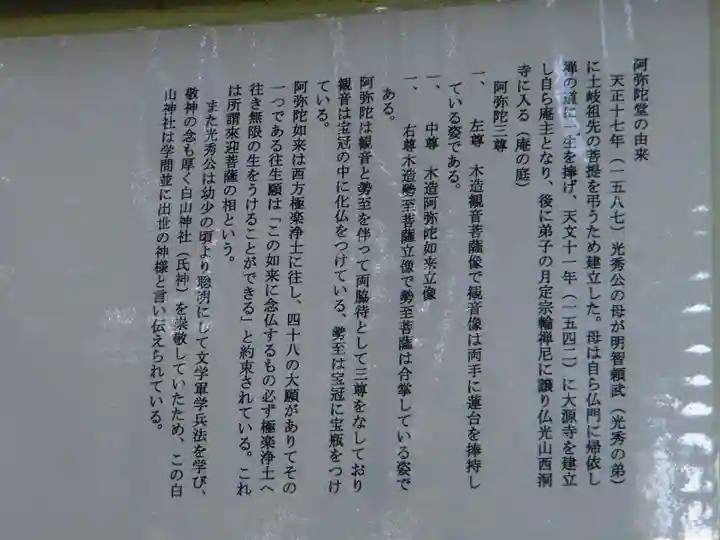 阿弥陀堂の由来
天正十七年（一五八七）光秀公の母が明智頼武（光秀の弟）
に土岐祖先の菩提を弔うため建立した。母は自ら仏門に帰依し
禅の道に一生を捧げ、天文十一年（一五四二）に大源寺を建立
し自ら庵主となり、後に弟子の月定宗輪禅尼に譲り仏光山西洞
寺に入る（庵の庭）
阿弥陀三尊
一、 左尊 木造観音菩薩像で観音像は両手に蓮台を捧持し
ている姿である。
一、 中尊 木造阿弥陀如来立像
一、 右尊木造勢至菩薩立像で勢至菩薩は合掌している姿で
ある。
阿弥陀は観音と勢至を伴って両脇待として三尊をなしており
観音は宝冠の中に化仏をつけている、勢至は宝冠に宝瓶をつけ
ている。
阿弥陀如来は西方極楽浄土に往し、四十八の大願がありてその
一つである往生願は「この如来に念仏するもの必ず極楽浄土へ
往き無限の生をうけることができる」と約束されている。これ
は所謂來迎菩薩の相という。
また光秀公は幼少の頃より聡明にして文学軍学兵法を学び、
敬神の念も厚く白山神社（氏神）を崇敬していたため、この白
山神社は学問並に出世の神様と言い伝えられている。